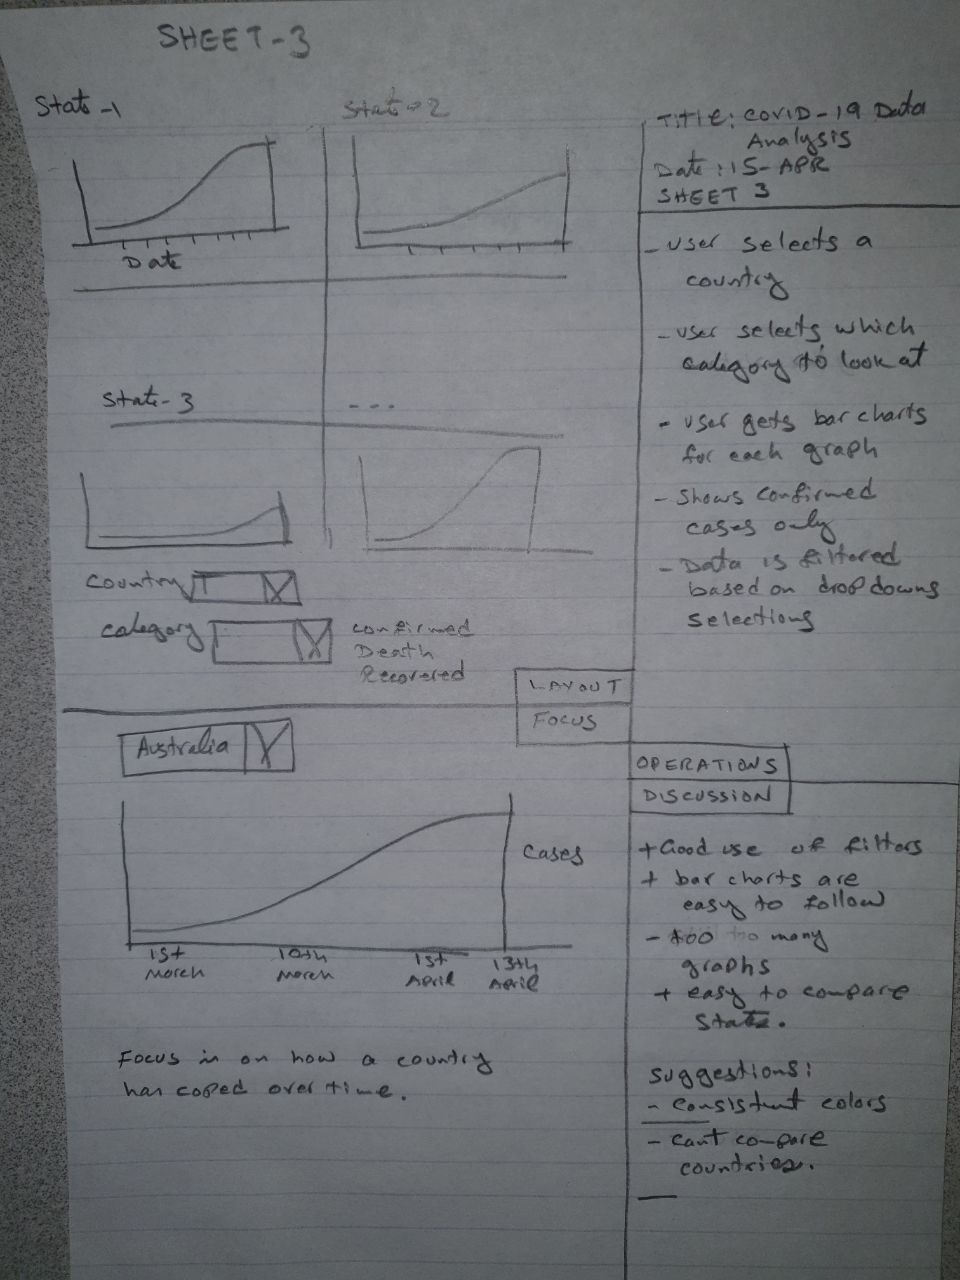 SHEET-3
State-1
State-2
Date
State-3
...
Country
category
confirmed
Death
Recovered
LAYOUT
FOCUS
Australia
Cases
1st March
10th March
1st April
13th April
Focus is on how a country
has coped over time.
TITLE: COVID-19 Data
Analysis
Date: 15-APR
SHEET 3
- user selects a
country
- user selects which
category to look at
- user gets bar charts
for each graph
- Shows confirmed
cases only
- Data is filtered
based on drop downs
selections
OPERATIONS
DISCUSSION
+ Good use of filters
+ bar charts are
easy to follow
- too many
graphs
+ easy to compare
State.
Suggestions:
- consistent colors
- cant compare
countries.